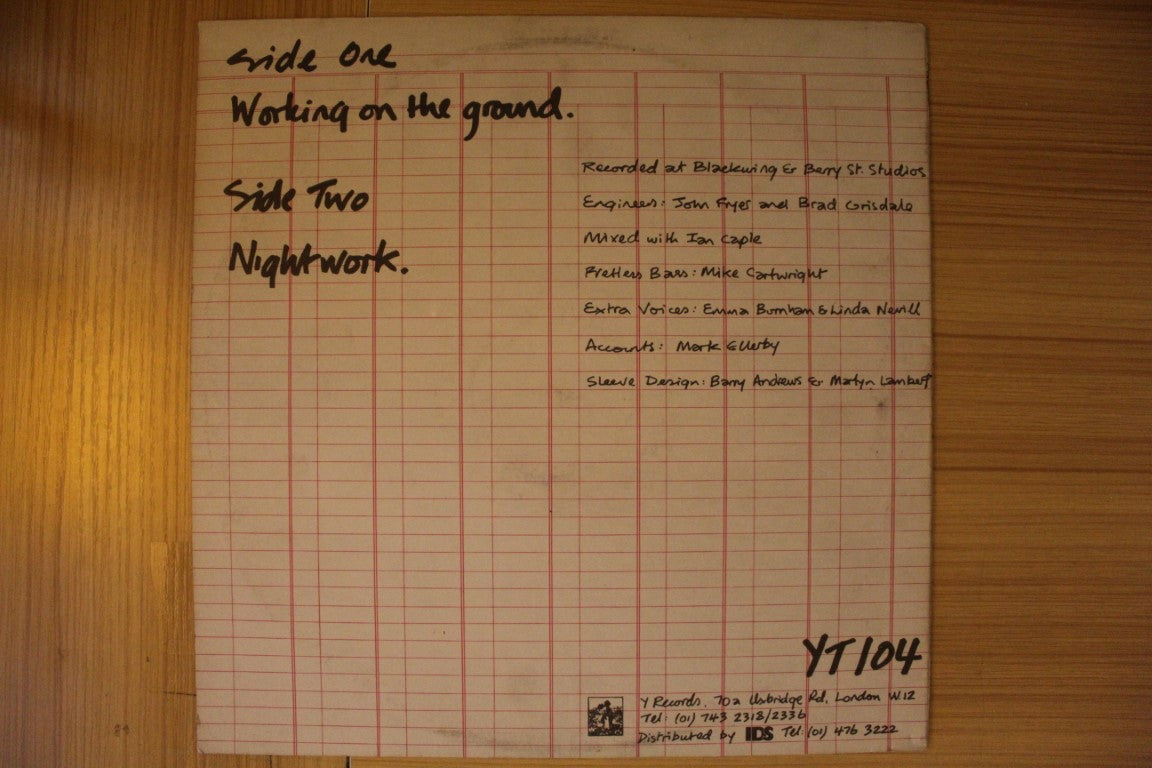 Side One
Working on the ground.
Side Two
Nightwork.
Recorded at Blackwing & Berry St. Studios
Engineers: John Fryer and Brad Grisdale
Mixed with Ian Caple
Fretless Bass: Mike Cartwright
Extra Voices: Emma Burnham & Linda Nevill
Accounts: Mark Ellerby
Sleeve Design: Barry Andrews & Martyn Lambert
YT104
Y Records, 70a Uxbridge Rd, London W.12
Tel: (01) 743 2318/2336
Distributed by IDS Tel: (01) 476 3222